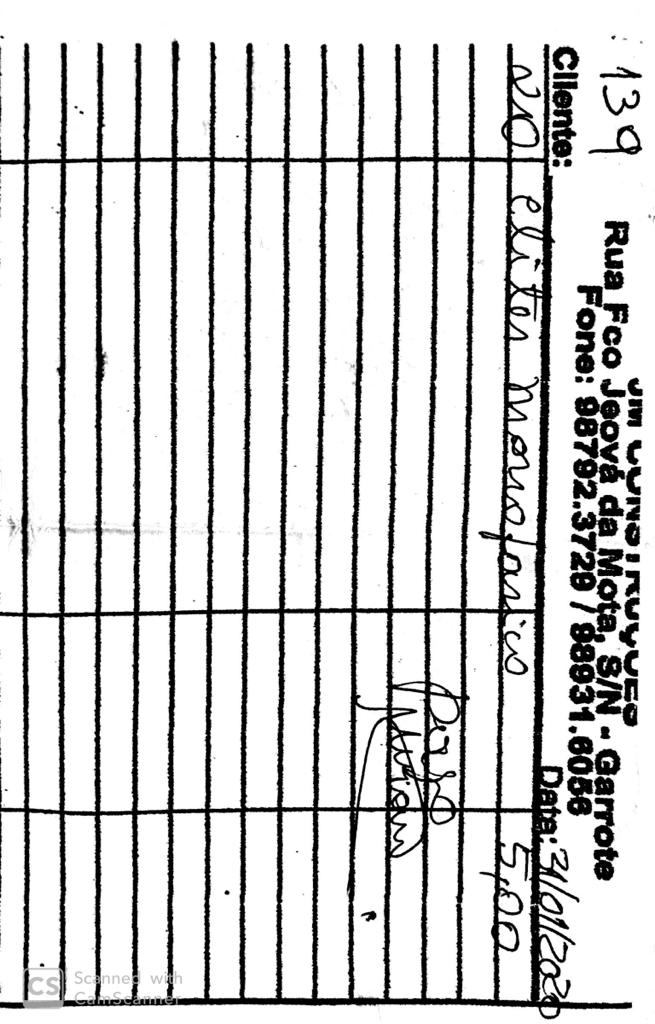 139
JM CONSTRUÇÕES
Rua Fco Jeová da Mota, S/N - Garrote
Fone: 98792.3729 / 98931.6056
Cliente: Data: 31/01/2020
20 cliter monofasico 5,00
Pago
CS Scanned with CamScanner